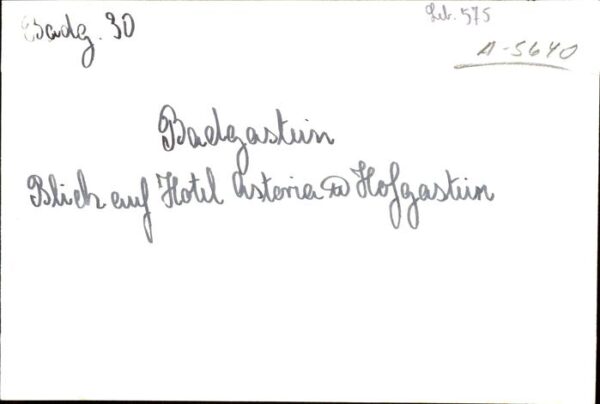 Badg. 30
Leb. 575
A-5640
Badgastein
Blick auf Hotel Astoria Hofgastein